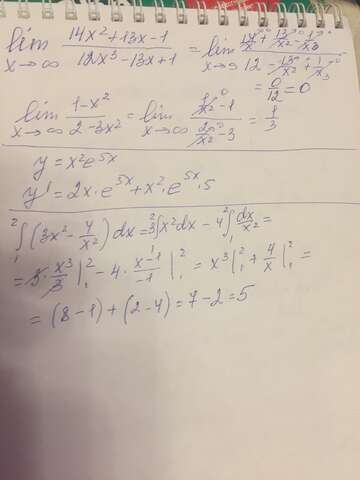 lim x→∞ (14x²+13x-1)/(12x³-13x+1) = lim x→∞ (14/x + 13/x² - 1/x³)/(12 - 13/x² + 1/x³)
= 0/12 = 0
lim x→∞ (1-x²)/(2-3x²) = lim x→∞ (1/x² - 1)/(2/x² - 3) = 1/3
y = x²e^5x
y' = 2x · e^5x + x² · e^5x · 5
²∫₁ (3x² - 4/x²) dx = 3 ²∫₁ x²dx - 4 ²∫₁ dx/x² =
= 3 · x³/3 |₁² - 4 · x⁻¹/-1 |₁² = x³ |₁² + 4/x |₁² =
= (8-1) + (2-4) = 7-2 = 5